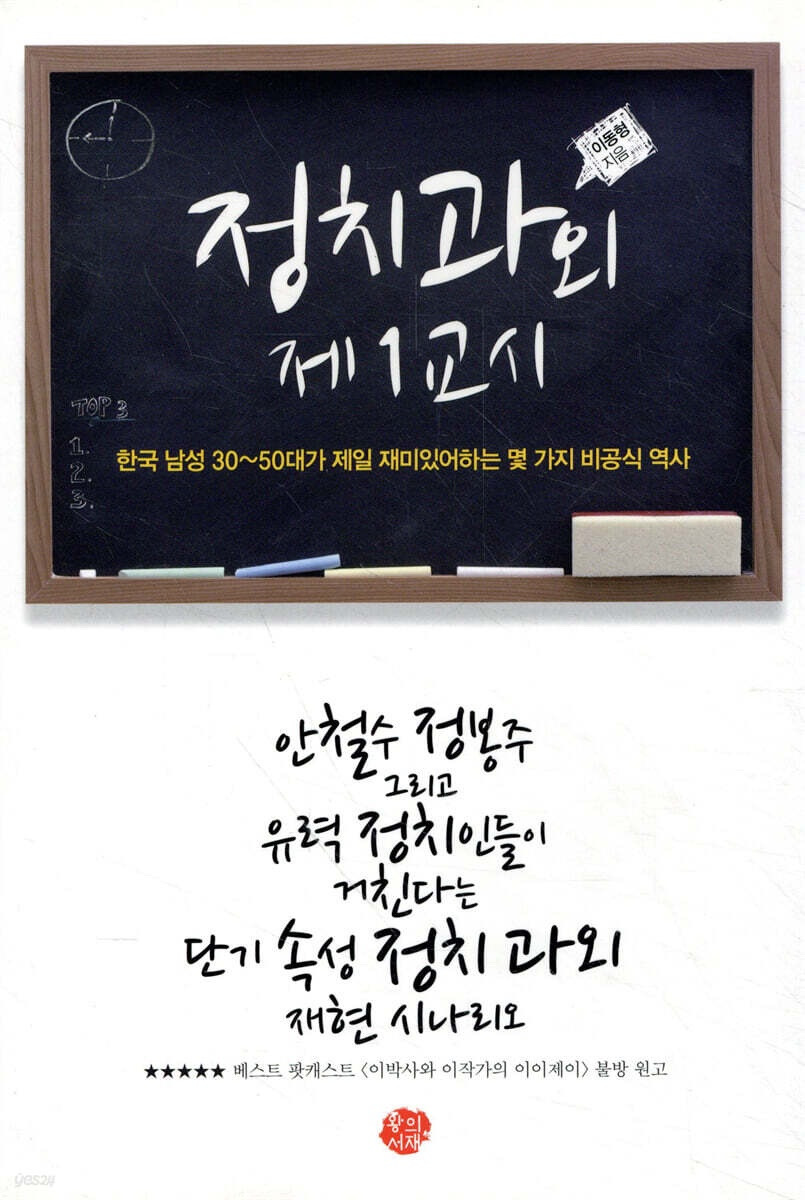 이동형
지음
정치과외
제1교시
TOP 3
1.
2.
3.
한국 남성 30~50대가 제일 재미있어하는 몇 가지 비공식 역사
안철수 정봉주
그리고
유력 정치인들이
거친다는
단기 속성 정치 과외
재현 시나리오
★★★★★ 베스트 팟캐스트 〈이박사와 이작가의 이이제이〉 불방 원고
황의
서재
yes24